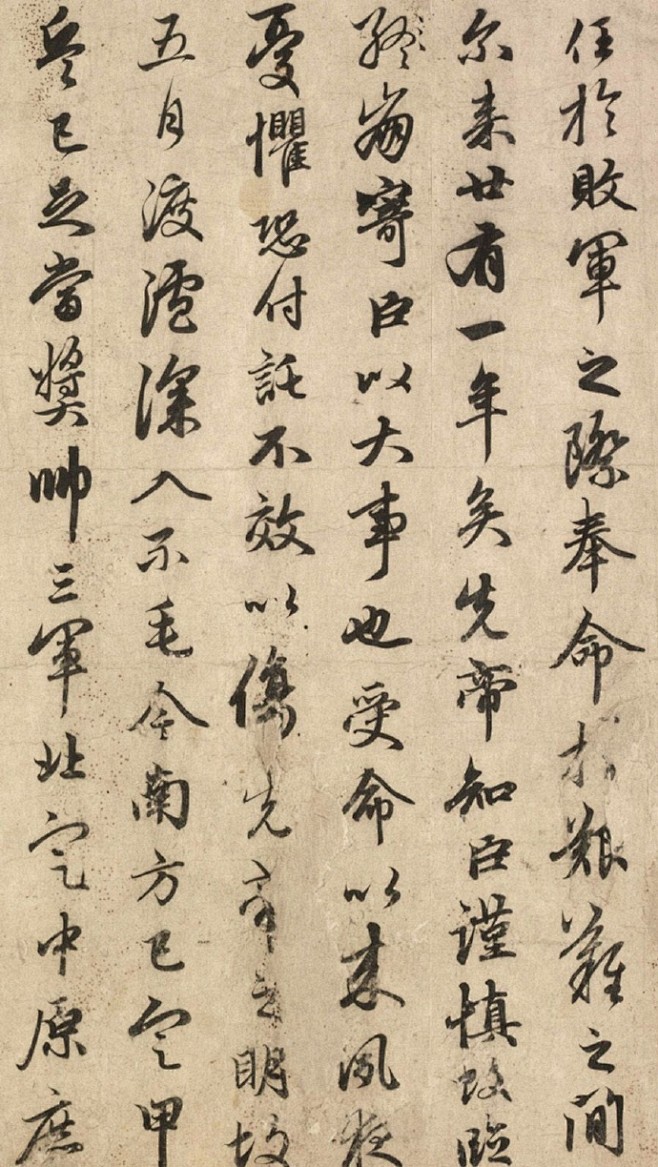 任於敗軍之際奉命於艱難之間
尓来廿有一年矣先帝知臣謹慎故臨
終崩寄臣以大事也受命以来夙夜
憂懼恐付託不效以傷先帝之明故
五月渡瀘深入不毛今南方已定甲
兵已足當奬帥三軍北定中原庶